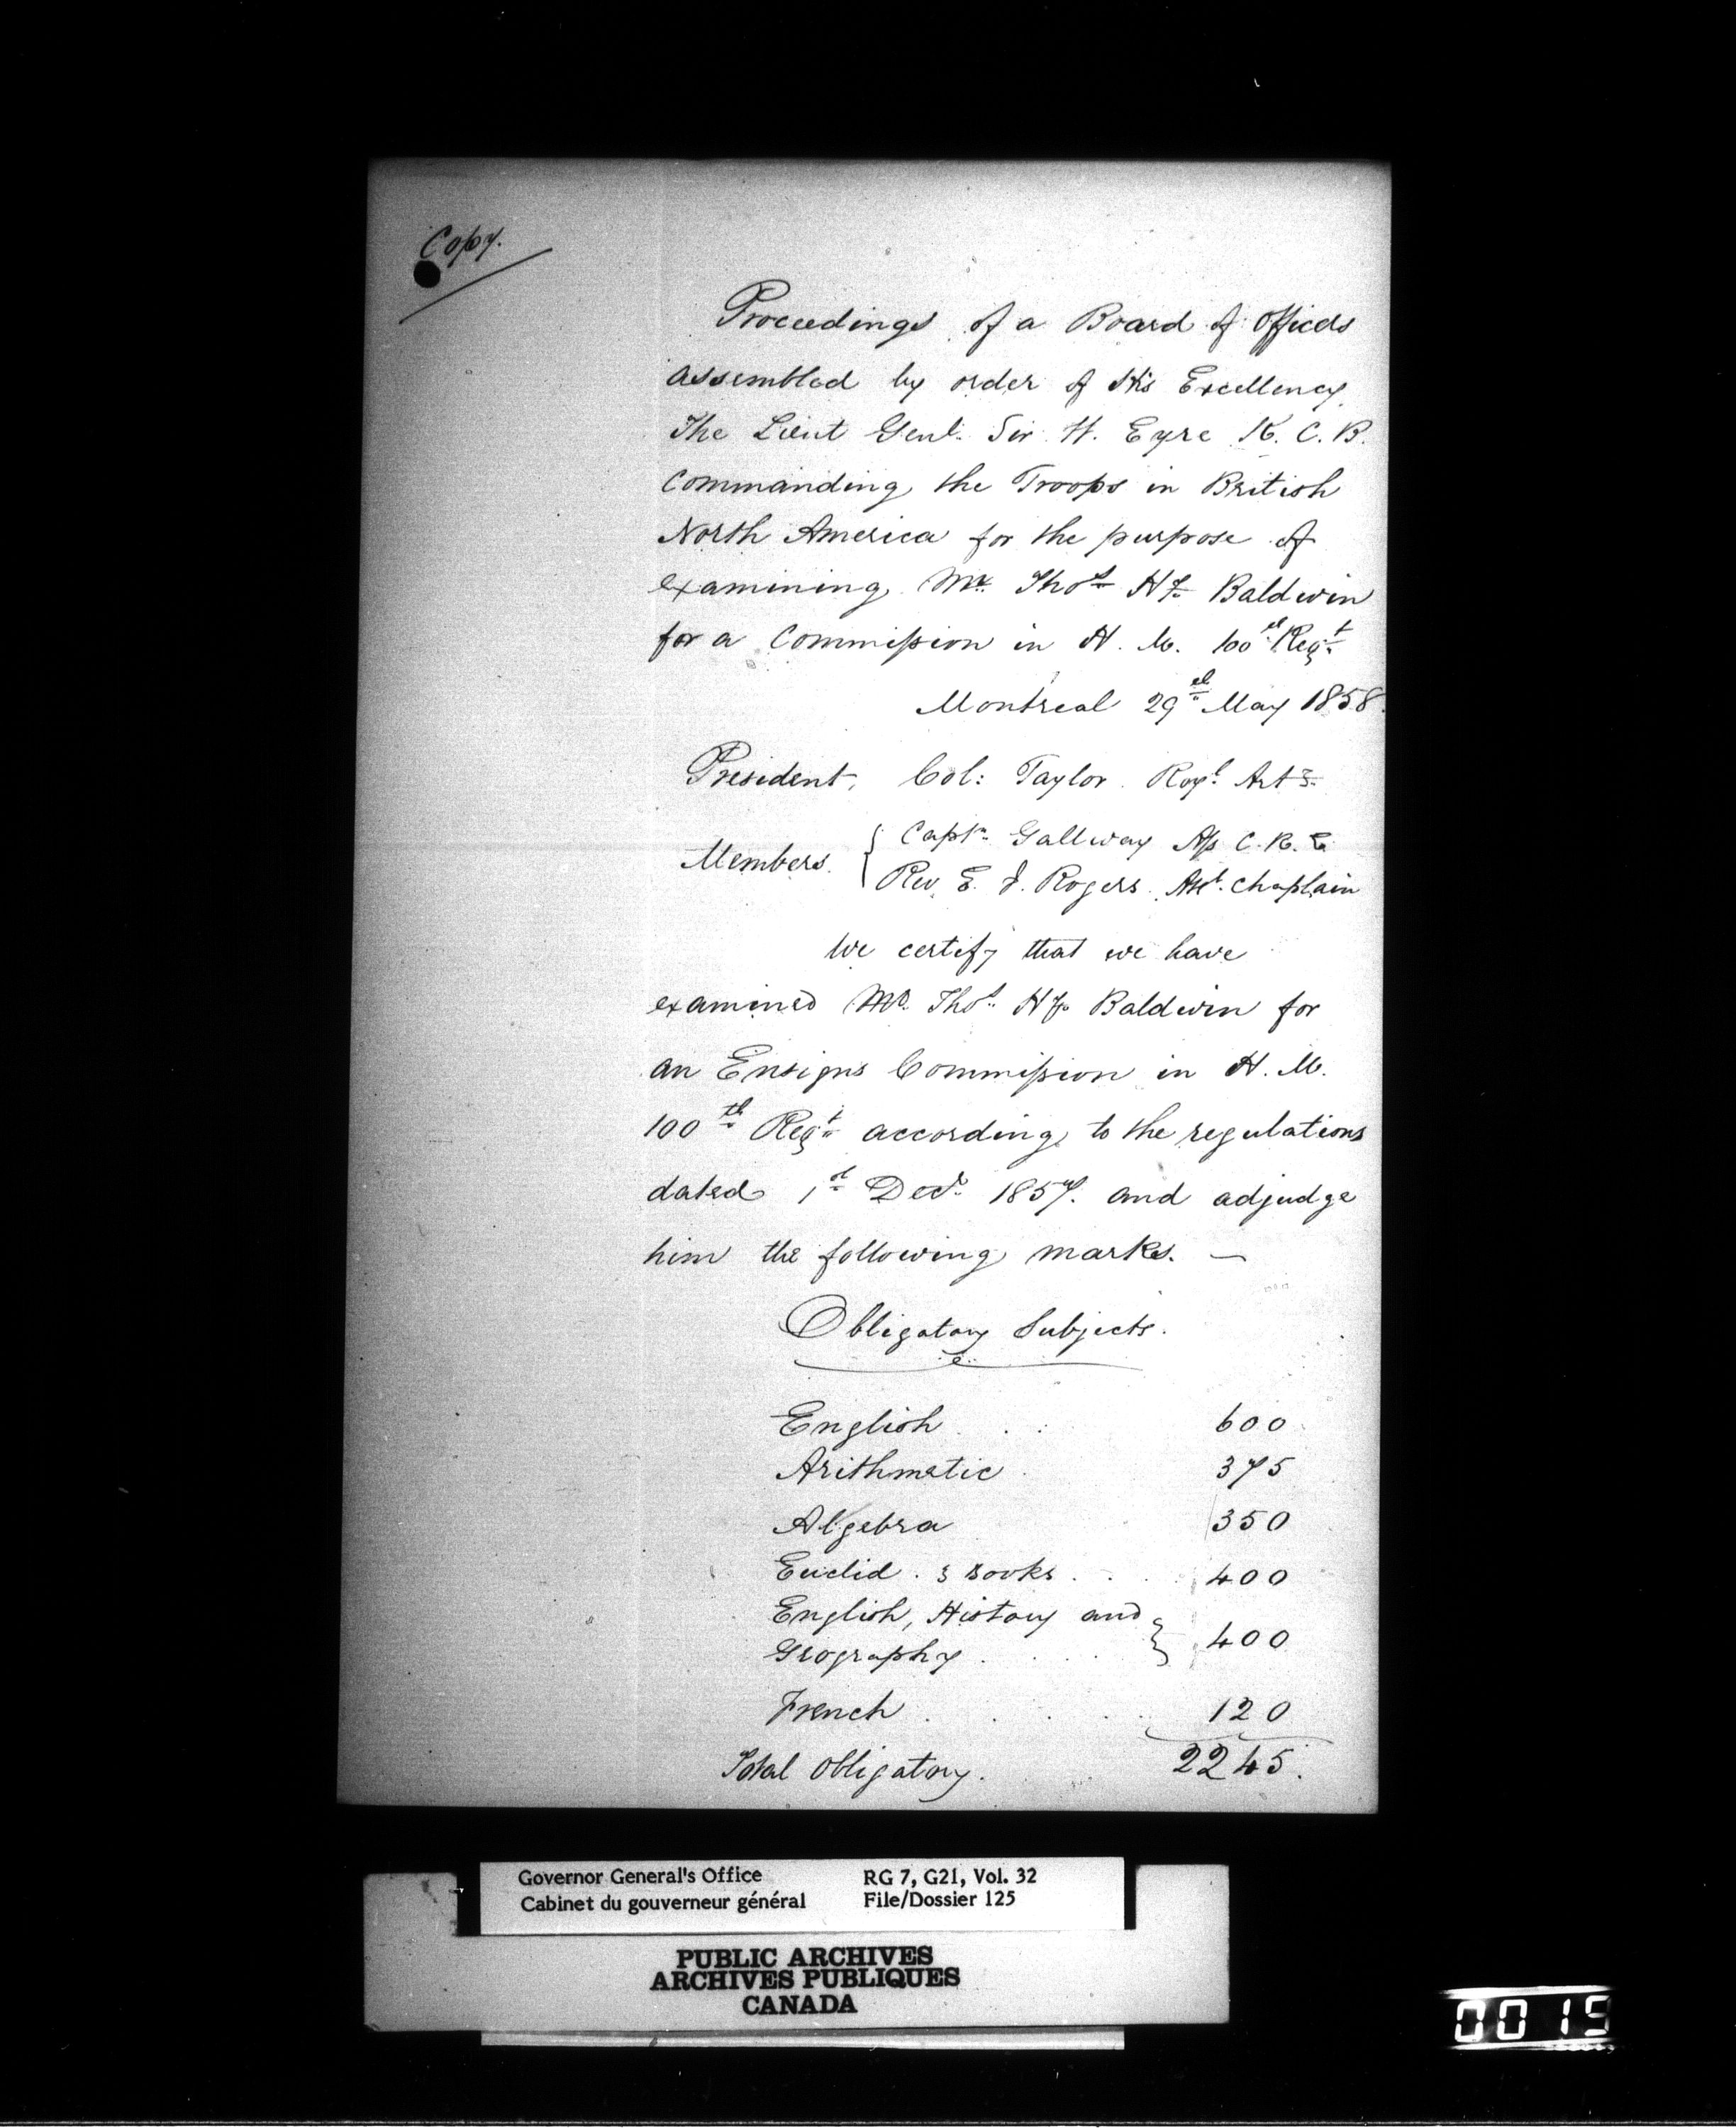 Copy.
Proceedings of a Board of Officers
assembled by order of His Excellency
The Lieut Genl. Sir W. Eyre K. C. B.
Commanding the Troops in British
North America for the purpose of
examining Mr. Thos. Baldwin
for a Commission in H. M. 100th Regt.
Montreal 29th May 1858.
President, Col: Taylor Royl. Arty.
Members. { Captn. Gallway C. R. E.
Rev. E. J. Rogers. Asst. Chaplain
We certify that we have
examined Mr. Thos. Baldwin for
an Ensigns Commission in H. M.
100th Regt. according to the regulations
dated 1st Decr. 1857. and adjudge
him the following marks. —
Obligatory Subjects.
English . . : 600
Arithmatic . 375
Algebra 350
Euclid . 3 Books . . . 400
English, History and
Geography . . . . } 400
French . . . . 120
Total Obligatory. 2245.
Governor General's Office RG 7, G21, Vol. 32
Cabinet du gouverneur général File/Dossier 125
PUBLIC ARCHIVES
ARCHIVES PUBLIQUES
CANADA
0015